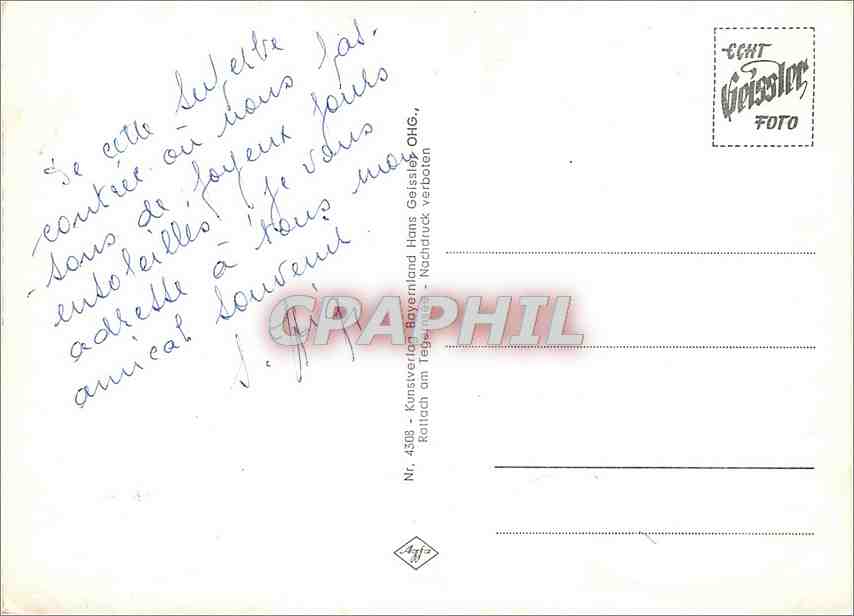 De cette superbe
contrée où nous pas-
sons de joyeux jours
ensoleillés je vous
adresse à tous mon
amical souvenir
ECHT
Geissler
FOTO
Nr. 4308 - Kunstverlag Bayernland Hans Geissler OHG.,
Rottach am Tegernsee - Nachdruck verboten
CPAPHIL
Agfa